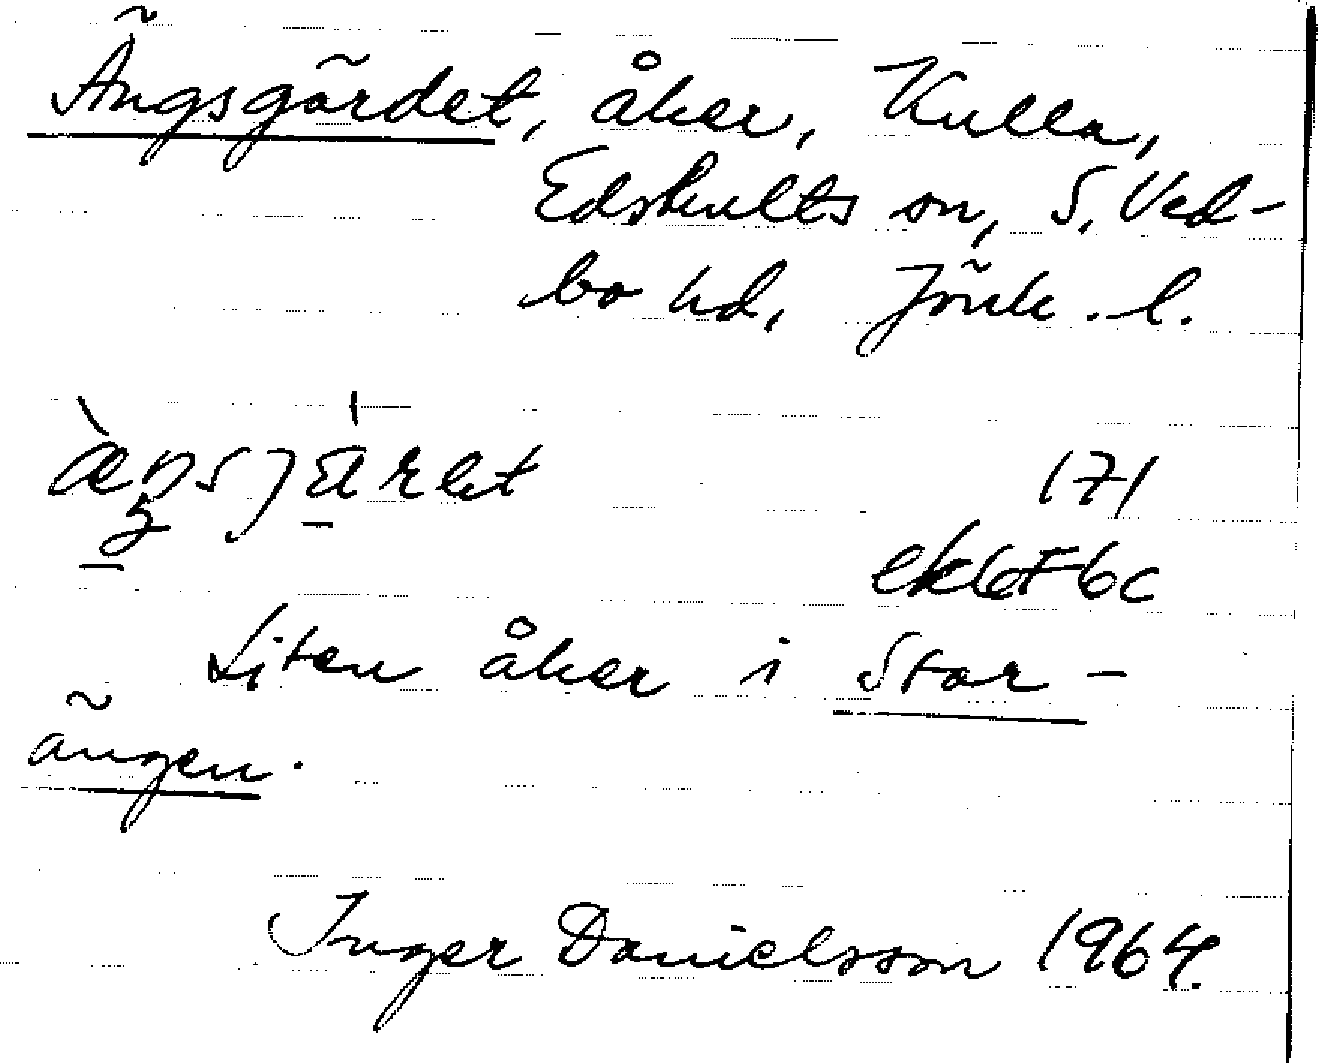 Ängsgärdet, åker, Kulla,
Edshults sn, S. Ved-
bo hd, Jönk. l.
171
ek 6F6c
Liten åker i Stor-
ängen.
Inger Danielsson 1964.